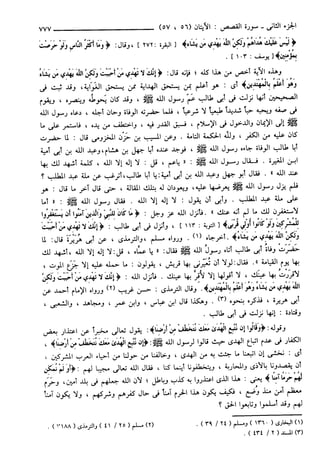 الجزء الثاني - سورة القصص : الآيتان (٥٦ ، ٥٧) ٧٧٧
﴿ لَيْسَ عَلَيْكَ هُدَاهُمْ وَلَكِنَّ اللَّهَ يَهْدِي مَن يَشَاءُ ﴾ [ البقرة : ٢٧٢ ] ، وقال : ﴿ وَمَا أَكْثَرُ النَّاسِ وَلَوْ حَرَصْتَ
بِمُؤْمِنِينَ ﴾ [ يوسف : ١٠٣ ] .
وهذه الآية أخص من هذا كله ؛ فإنه قال : ﴿ إِنَّكَ لا تَهْدِي مَنْ أَحْبَبْتَ وَلَكِنَّ اللَّهَ يَهْدِي مَن يَشَاءُ
وَهُوَ أَعْلَمُ بِالْمُهْتَدِينَ ﴾ أي : هو أعلم بمن يستحق الهداية ممن يستحق الغواية ، وقد ثبت في
الصحيحين أنها نزلت في أبي طالب عم رسول الله ﷺ ، وقد كان يحوطه وينصره ، ويقوم
في صفه ويحبه حبا شديداً طبعياً لا شرعيا ، فلما حضرته الوفاة وحان أجله ، دعاه رسول الله
ﷺ إلى الإيمان والدخول في الإسلام ، فسبق القدر فيه ، واختطف من يده ، فاستمر على ما
كان عليه من الكفر ، ولله الحكمة التامة . وعن المسيب بن حزن المخزومي قال : لما حضرت
أبا طالب الوفاة جاءه رسول الله ﷺ ، فوجد عنده أبا جهل بن هشام ، وعبد الله بن أبي أمية
ابن المغيرة . فقال رسول الله ﷺ : « ياعم ، قل : لا إله إلا الله ، كلمة أشهد لك بها
عند الله » . فقال أبو جهل وعبد الله بن أبي أمية : يا أبا طالب ، أترغب عن ملة عبد المطلب ؟
فلم يزل رسول الله ﷺ يعرضها عليه ، ويعودان له بتلك المقالة ، حتى قال آخر ما قال : هو
على ملة عبد المطلب . وأبى أن يقول : لا إله إلا الله . فقال رسول الله ﷺ : « أما
لأستغفرن لك ما لم أنه عنك » . فأنزل الله عز وجل : ﴿ مَا كَانَ لِلنَّبِيِّ وَالَّذِينَ آمَنُوا أَن يَسْتَغْفِرُوا
لِلْمُشْرِكِينَ وَلَوْ كَانُوا أُولِي قُرْبَى ﴾ [ التوبة : ١١٣ ] ، وأنزل في أبي طالب : ﴿ إِنَّكَ لا تَهْدِي مَنْ أَحْبَبْتَ
وَلَكِنَّ اللَّهَ يَهْدِي مَن يَشَاءُ ﴾ . أخرجاه (١) . ورواه مسلم ، والترمذي ، عن أبي هريرة قال : لما
حضرت وفاة أبي طالب أتاه رسول الله ﷺ فقال : « يا عماه ، قل : لا إله إلا الله ، أشهد لك
بها يوم القيامة » . فقال : لولا أن تعيرني بها قريش ، يقولون : ما حمله عليه إلا جزع الموت ،
لأقررت بها عينك ، لا أقولها إلا لأقر بها عينك . فأنزل الله : ﴿ إِنَّكَ لا تَهْدِي مَنْ أَحْبَبْتَ وَلَكِنَّ
اللَّهَ يَهْدِي مَن يَشَاءُ وَهُوَ أَعْلَمُ بِالْمُهْتَدِينَ ﴾ . وقال الترمذي : حسن غريب (٢) ورواه الإمام أحمد عن
أبي هريرة ، فذكره بنحوه (٣) . وهكذا قال ابن عباس ، وابن عمر ، ومجاهد ، والشعبي ،
وقتادة : إنها نزلت في أبي طالب .
وقوله : ﴿ وَقَالُوا إِن نَّتَّبِعِ الْهُدَى مَعَكَ نُتَخَطَّفْ مِنْ أَرْضِنَا ﴾ : يقول تعالى مخبراً عن اعتذار بعض
الكفار في عدم اتباع الهدى حيث قالوا لرسول الله ﷺ : ﴿ إِن نَّتَّبِعِ الْهُدَى مَعَكَ نُتَخَطَّفْ مِنْ أَرْضِنَا ﴾ ،
أي : نخشى إن اتبعنا ما جئت به من الهدى ، وخالفنا من حولنا من أحياء العرب المشركين ،
أن يقصدونا بالأذى والمحاربة ، ويتخطفونا أينما كنا ، فقال الله تعالى مجيبا لهم : ﴿ أَوَ لَمْ نُمَكِّن
لَّهُمْ حَرَمًا آمِنًا ﴾ يعني : هذا الذي اعتذروا به كذب وباطل ؛ لأن الله جعلهم في بلد أمين ، وحرم
معظم آمن منذ وضع ، فكيف يكون هذا الحرم آمناً في حال كفرهم وشركهم ، ولا يكون آمناً
لهم وقد أسلموا وتابعوا الحق ؟
(١) البخاري (١٣٦٠) ومسلم (٢٤ / ٣٩) . (٢) مسلم (٢٥ / ٤١) والترمذي (٣١٨٨) .
(٣) المسند (٢ / ٤٣٤) .